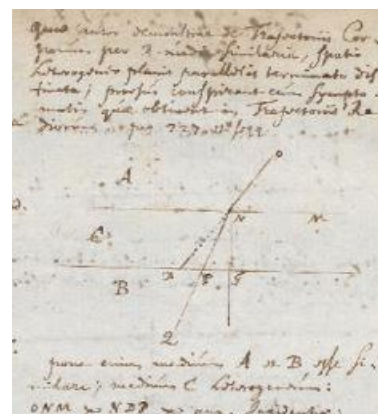 Quae autor demonstrat de Trajectoriis Cor-
porum per 2 media similaria, spatio
heterogeneo planis parallelis terminato dis
tincta; prorsus conspirant cum sympto-
matis quae obtinent in Trajectoriis Ra
diorum. pag 227.
A
N M
C
D P S
B
Q
pone enim medium A et B esse si-
milare; medium C heterogeneum:
ONM NDP